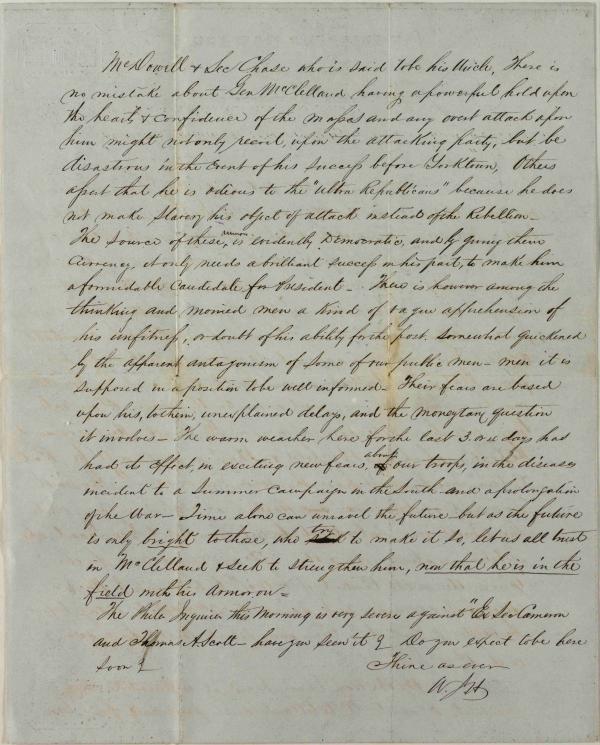 McDowell & Sec Chase who is said to be his Uncle, There is
no mistake about Gen McClelland having a powerful hold upon
the heart & confidence of the masses and any overt attack upon
him might not only recoil, upon the attacking party, but be
disastrous in the Event of his success before Yorktown, Others
assert that he is odious to the "ultra Republicans" because he does
not make Slavery his object of attack instead of the Rebellion –
The Source of these rumors is evidently Democratic, and by giving them
Currency, it only needs a brilliant success on his part, to make him
a formidable Candidate for President – There is however among the
thinking and monied men a Kind of vague apprehension of
his unfitness, or doubt of his ability for the post. Somewhat quickened
by the apparent antagonism of Some of our public men – men it is
supposed in a position to be well informed – Their fears are based
upon his, to them, unexplained delays, and the monytary question
it involves – The warm weather here for the last 3 or 4 days has
had its Effect, in exciting new fears, about our troops, in the diseases
incident to a Summer Campaign in the South – and a prolongation
of the War – Time alone can unravel the future – but as the future
is only bright to those, who try to make it So, let us all trust
in McClelland & seek to strengthen him, now that he is in the
field with his Armor on –
The Phila Inquirer this Morning is very severe against "Ex Sec Cameron
and Thomas A. Scott – have you seen it? Do you expect to be here
soon?
Thine as ever
W. J H